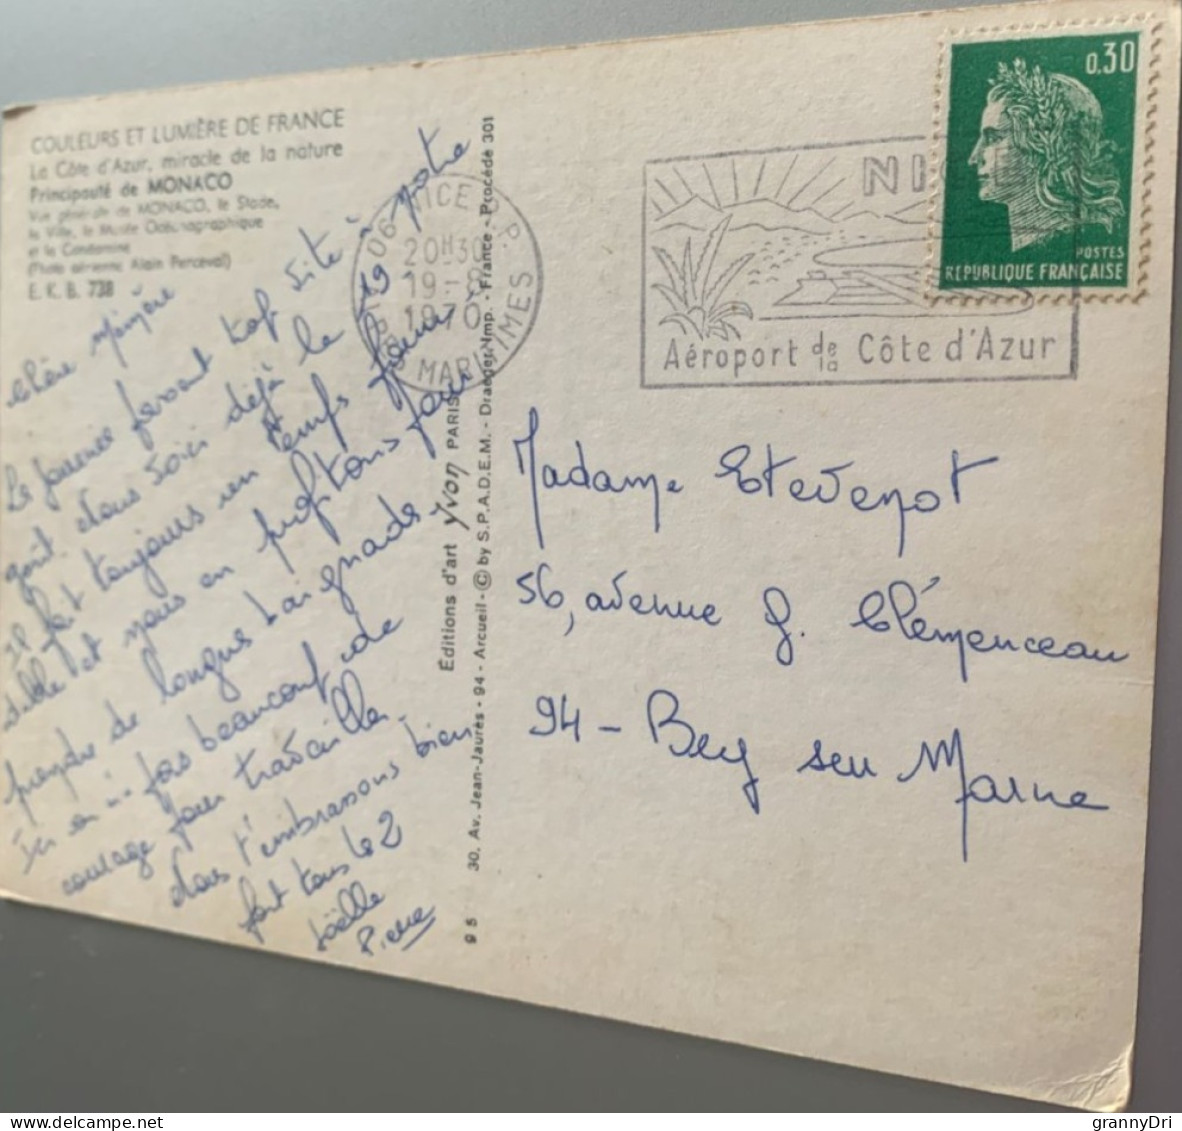 COULEURS ET LUMIÈRE DE FRANCE
La Côte d'Azur, miracle de la nature
Principauté de MONACO
Vue générale de MONACO, le Stade,
la Ville, le Musée Océanographique
et la Condamine
(Photo aérienne Alain Perceval)
E. K. B. 738
Chère
La journée passent top vite à notre
goût. Nous voici déjà le 19
Il fait toujours un temps
et nous en profitons pour
prendre de longues baignades.
Ici on n'a pas beaucoup de
courage pour travailler.
Nous t'embrassons bien
fort tous les 2
Joëlle
Pierre
Éditions d'art Yvon PARIS
30, Av. Jean-Jaurès - 94 - Arcueil - © by S.P.A.D.E.M. - Draeger Imp. - France - Procédé 301
9 5
06 NICE R.P.
20H30
19-8
1970
ALPES MARITIMES
NICE
Aéroport de la Côte d'Azur
0,30
POSTES
RÉPUBLIQUE FRANÇAISE
Madame Etevenot
56, avenue G. Clémenceau
94 - Bry sur Marne
grannyDri